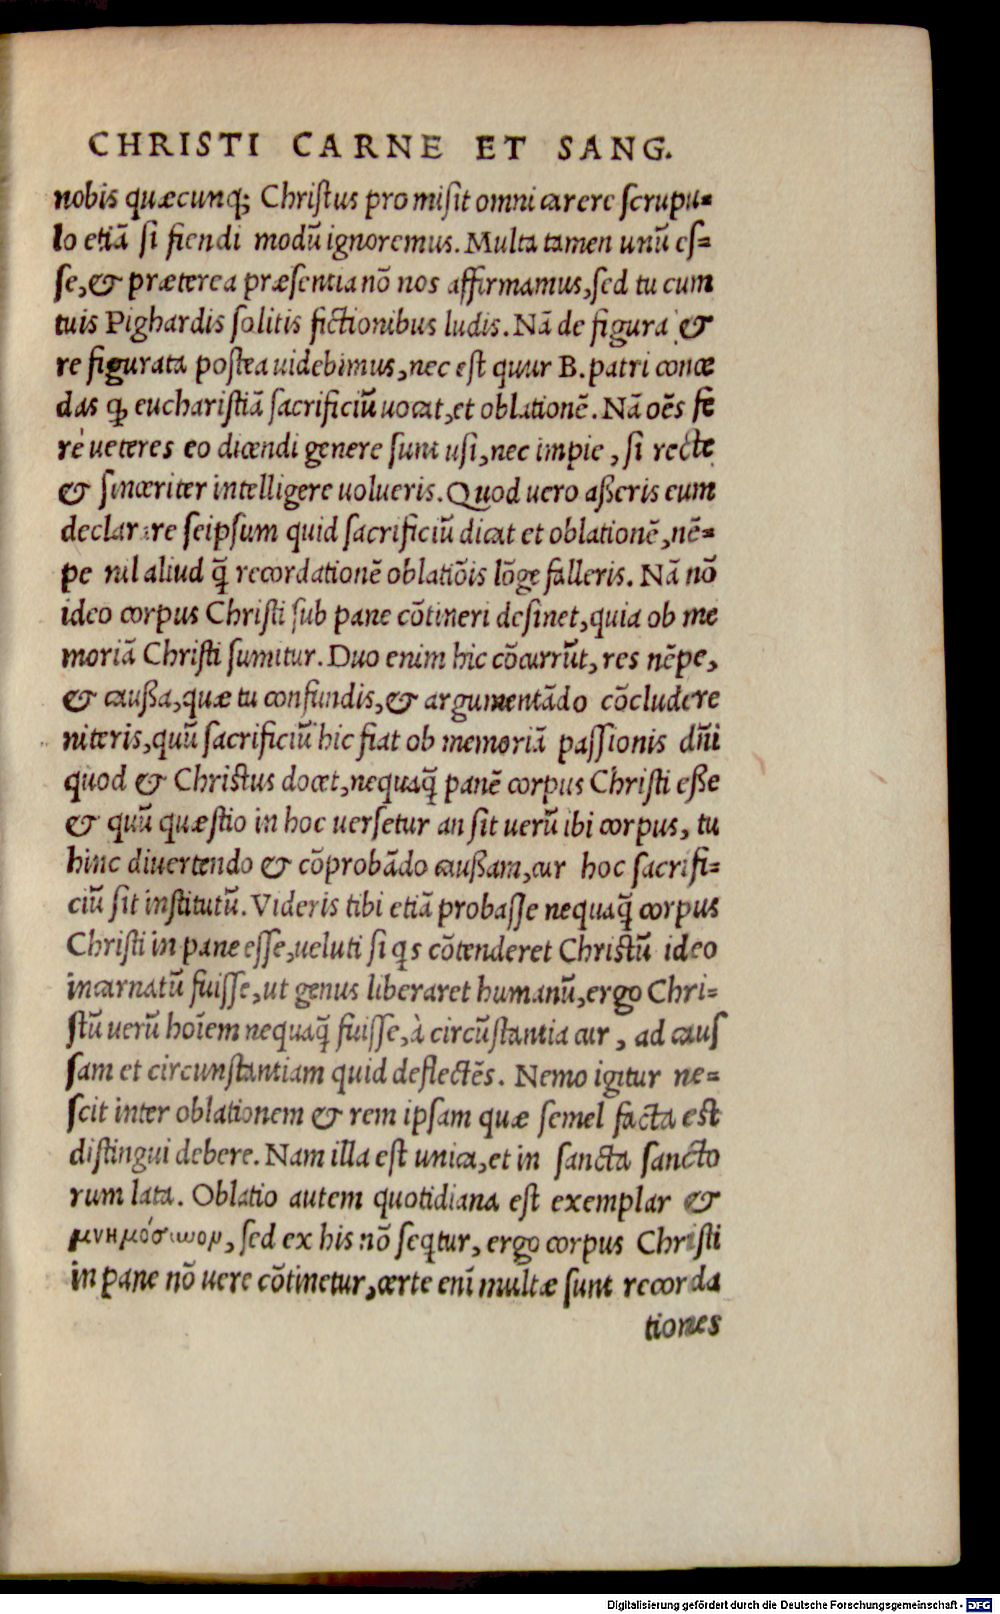 CHRISTI CARNE ET SANG.
nobis quæcunq; Christus promisit omni carere scrupu=
lo etiā si fiendi modū ignoremus. Multa tamen unū es=
se, & præterea præsentia nō nos affirmamus, sed tu cum
tuis Pighardis solitis fictionibus ludis. Nā de figura &
re figurata postea uidebimus, nec est quur B. patri conce
das q̨ eucharistiā sacrificiū uocat, et oblationē. Nā oēs fe
rè ueteres eo dicendi genere sunt usi, nec impie, si recte
& sinceriter intelligere uolueris. Quod uero aßeris eum
declarare seipsum quid sacrificiū dicat et oblationē, nē=
pe nil aliud q̄ recordationē oblatiōis lōge falleris. Nā nō
ideo corpus Christi sub pane cōtineri desinet, quia ob me
moriā Christi sumitur. Duo enim hic cōcurrūt, res nēpe,
& caußa, quæ tu confundis, & argumentādo cōcludere
niteris, quū sacrificiū hic fiat ob memoriā passionis dn̄i
quod & Christus docet, nequaq̄ panē corpus Christi eße
& quū quæstio in hoc uersetur an sit uerū ibi corpus, tu
hinc divertendo & cōprobādo caußam, cur hoc sacrifi=
ciū sit institutū. Videris tibi etiā probasse nequaq̄ corpus
Christi in pane esse, ueluti si qs cōtenderet Christū ideo
incarnatū fuisse, ut genus liberaret humanū, ergo Chri=
stū uerū hoīem nequaq̄ fuisse, à circūstantia cur, ad caus
sam et circunstantiam quid deflectēs. Nemo igitur ne=
scit inter oblationem & rem ipsam quæ semel facta est
distingui debere. Nam illa est unica, et in sancta sancto
rum lata. Oblatio autem quotidiana est exemplar &
μνημόσυνον, sed ex his nō seqtur, ergo corpus Christi
in pane nō uere cōtinetur, certe enī multæ sunt recorda
tiones
Digitalisierung gefördert durch die Deutsche Forschungsgemeinschaft - DFG